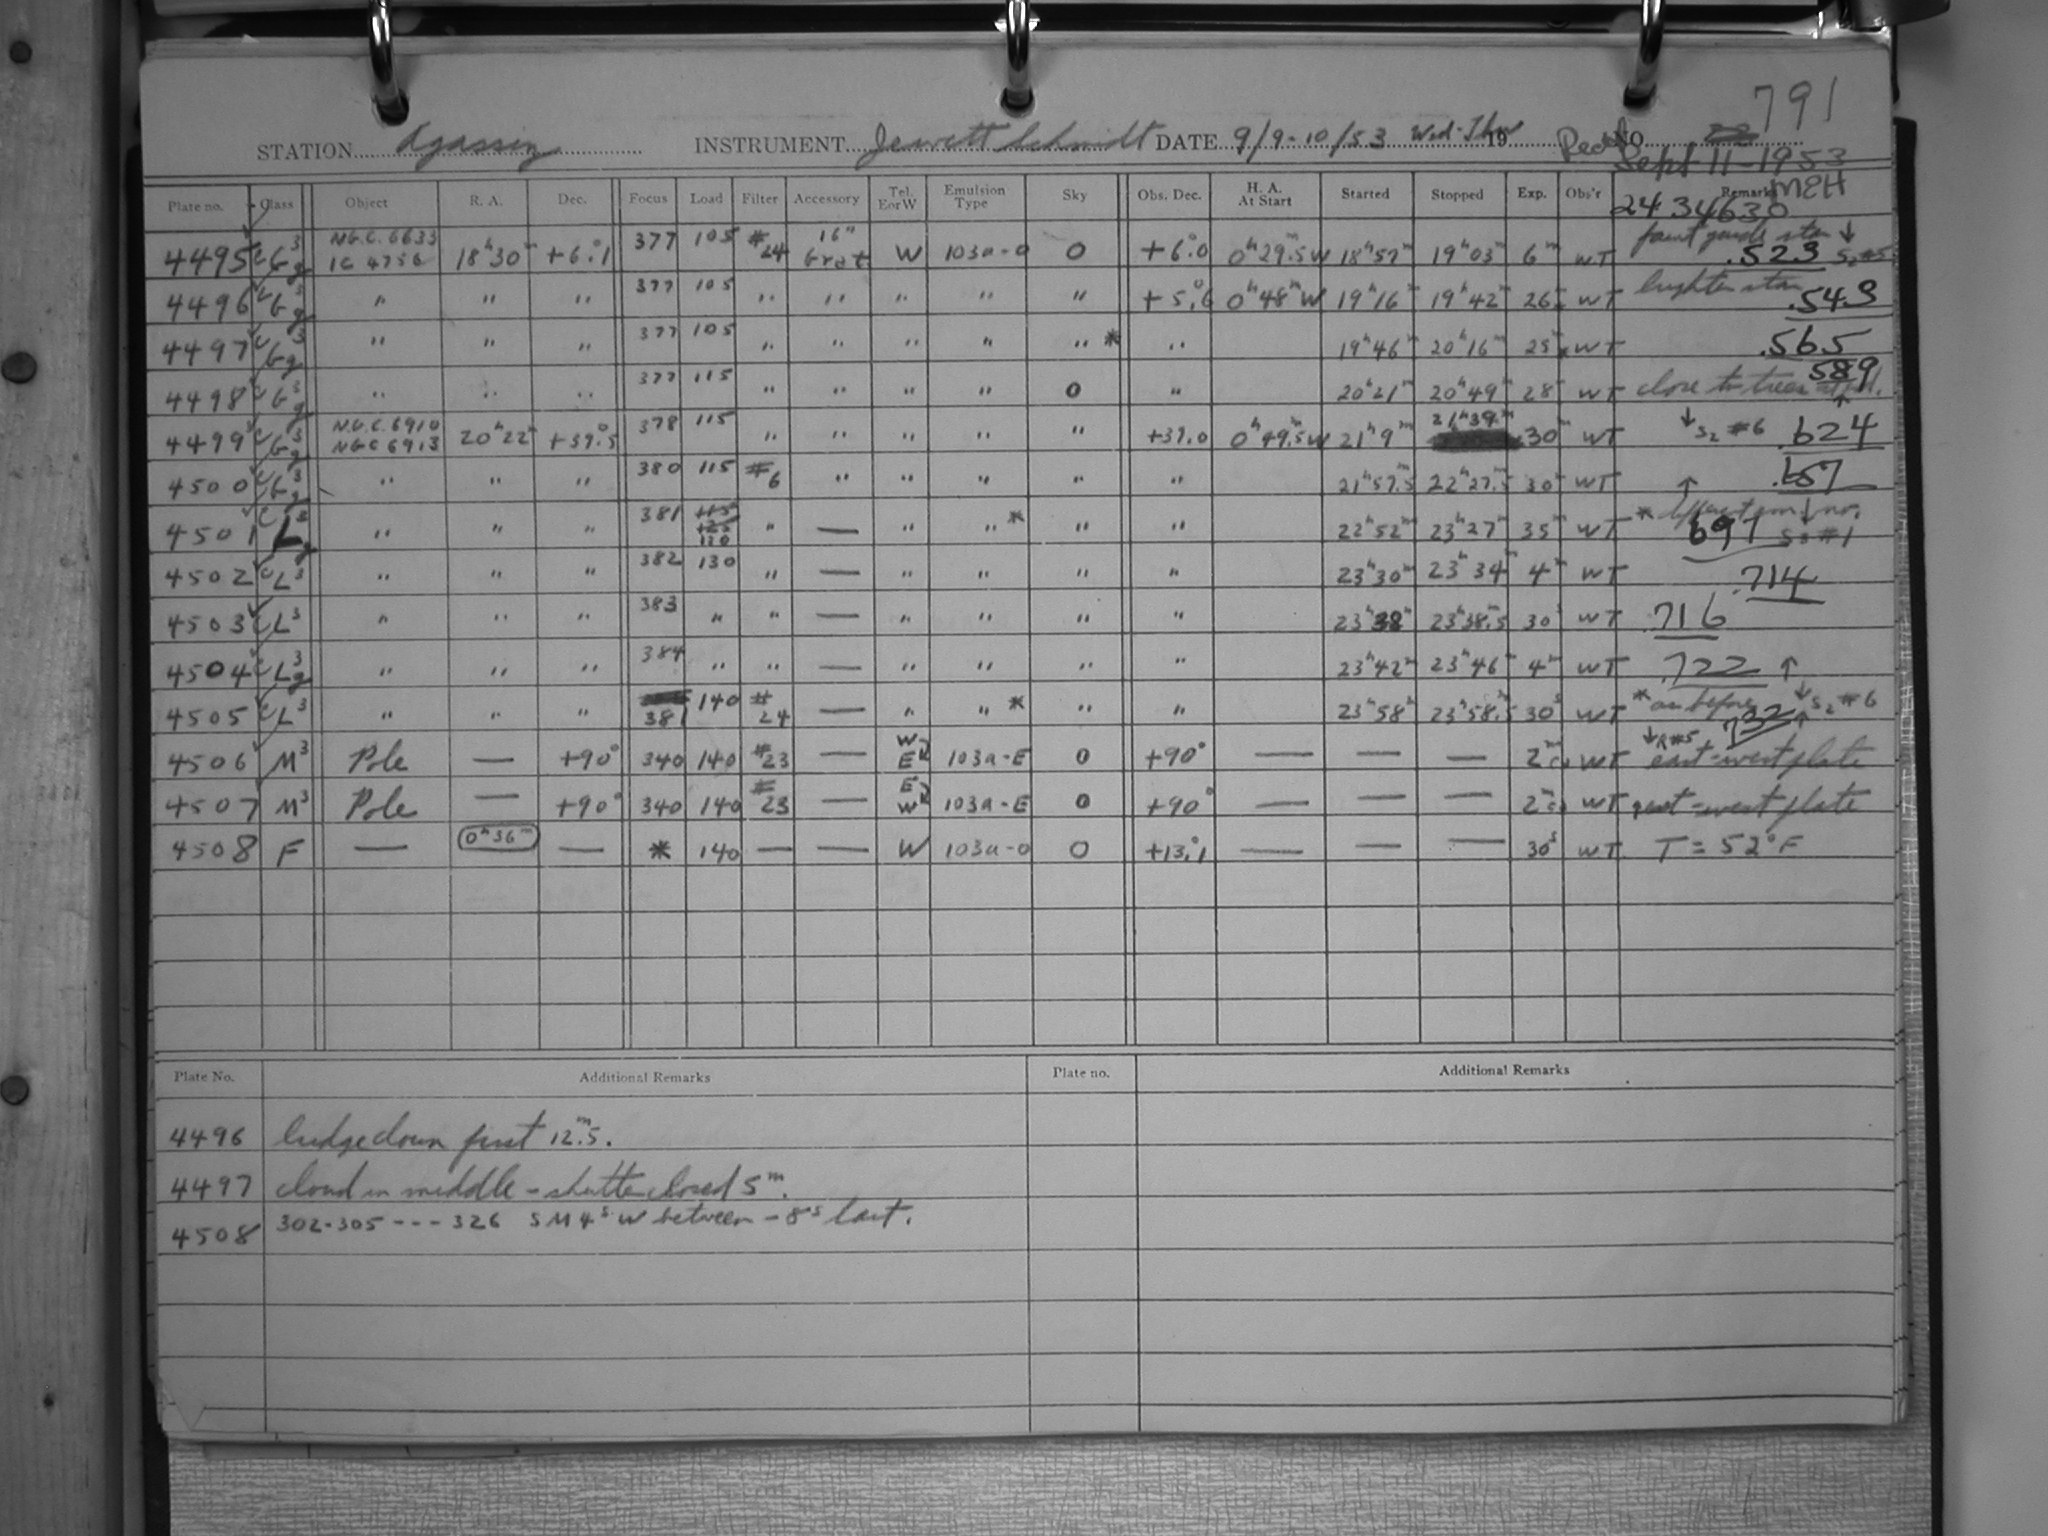 791
STATION Agassiz INSTRUMENT Jewett Schmidt DATE 9/9-10/53 Wed-Thu 19 Recd NO.
Sept 11-1953
MEH
Plate no. Class Object R. A. Dec. Focus Load Filter Accessory Tel. E or W Emulsion Type Sky Obs. Dec. H. A. At Start Started Stopped Exp. Obs'r Remarks
2434630
4495 N.G.C. 6633 IC 4756 18h30m +6°.1 377 105 #24 16" Grat W 103a-O O +6°.0 0h29m.5W 18h57m 19h03m 6m WT faint guide star ↓ .523 S2#5
4496 " " " 377 105 " " " " " +5°.6 0h48mW 19h16m 19h42m 26m WT brighter star .543
4497 " " " 377 105 " " " " " * " 19h46m 20h16m 25m WT .565
4498 " " " 377 115 " " " " O " 20h21m 20h49m 28m WT close to trees .589
4499 N.G.C. 6910 NGC 6913 20h22m +39°.5 378 115 " " " " " +39.0 0h49m.5W 21h9m 21h39m 30m WT ↓ S2 #6 .624
4500 " " " 380 115 #6 " " " " " 21h57m.5 22h27m.5 30m WT ↑ .657
4501 L3 " " " 381 115 125 120 " — " " * " " 22h52m 23h27m 35m WT * .697 S3 #1
4502 L3 " " " 382 130 " — " " " " 23h30m 23h34m 4m WT .714
4503 L3 " " " 383 " " — " " " " 23h38m 23h38m.5 30s WT .716
4504 L3 " " " 384 " " — " " " " 23h42m 23h46m 4m WT .722 ↑
4505 L3 " " " 381 140 #24 — " " * " " 23h58m 23h58m.5 30s WT * as before ↓ S2 #6 .732 ↑
4506 M3 Pole — +90° 340 140 #23 — W E 103a-E O +90° — — — 2m WT ↓ R#5 east-west plate
4507 M3 Pole — +90° 340 140 #23 — E W 103a-E O +90° — — — 2m WT east-west plate
4508 F — 0h36m — * 140 — — W 103a-O O +13°.1 — — — 30s WT T = 52°F
Plate No. Additional Remarks Plate no. Additional Remarks
4496 bridge down first 12m.5.
4497 cloud in middle - shutter closed 5m.
4508 302-305 --- 326 SM 4s W between - 8s last.